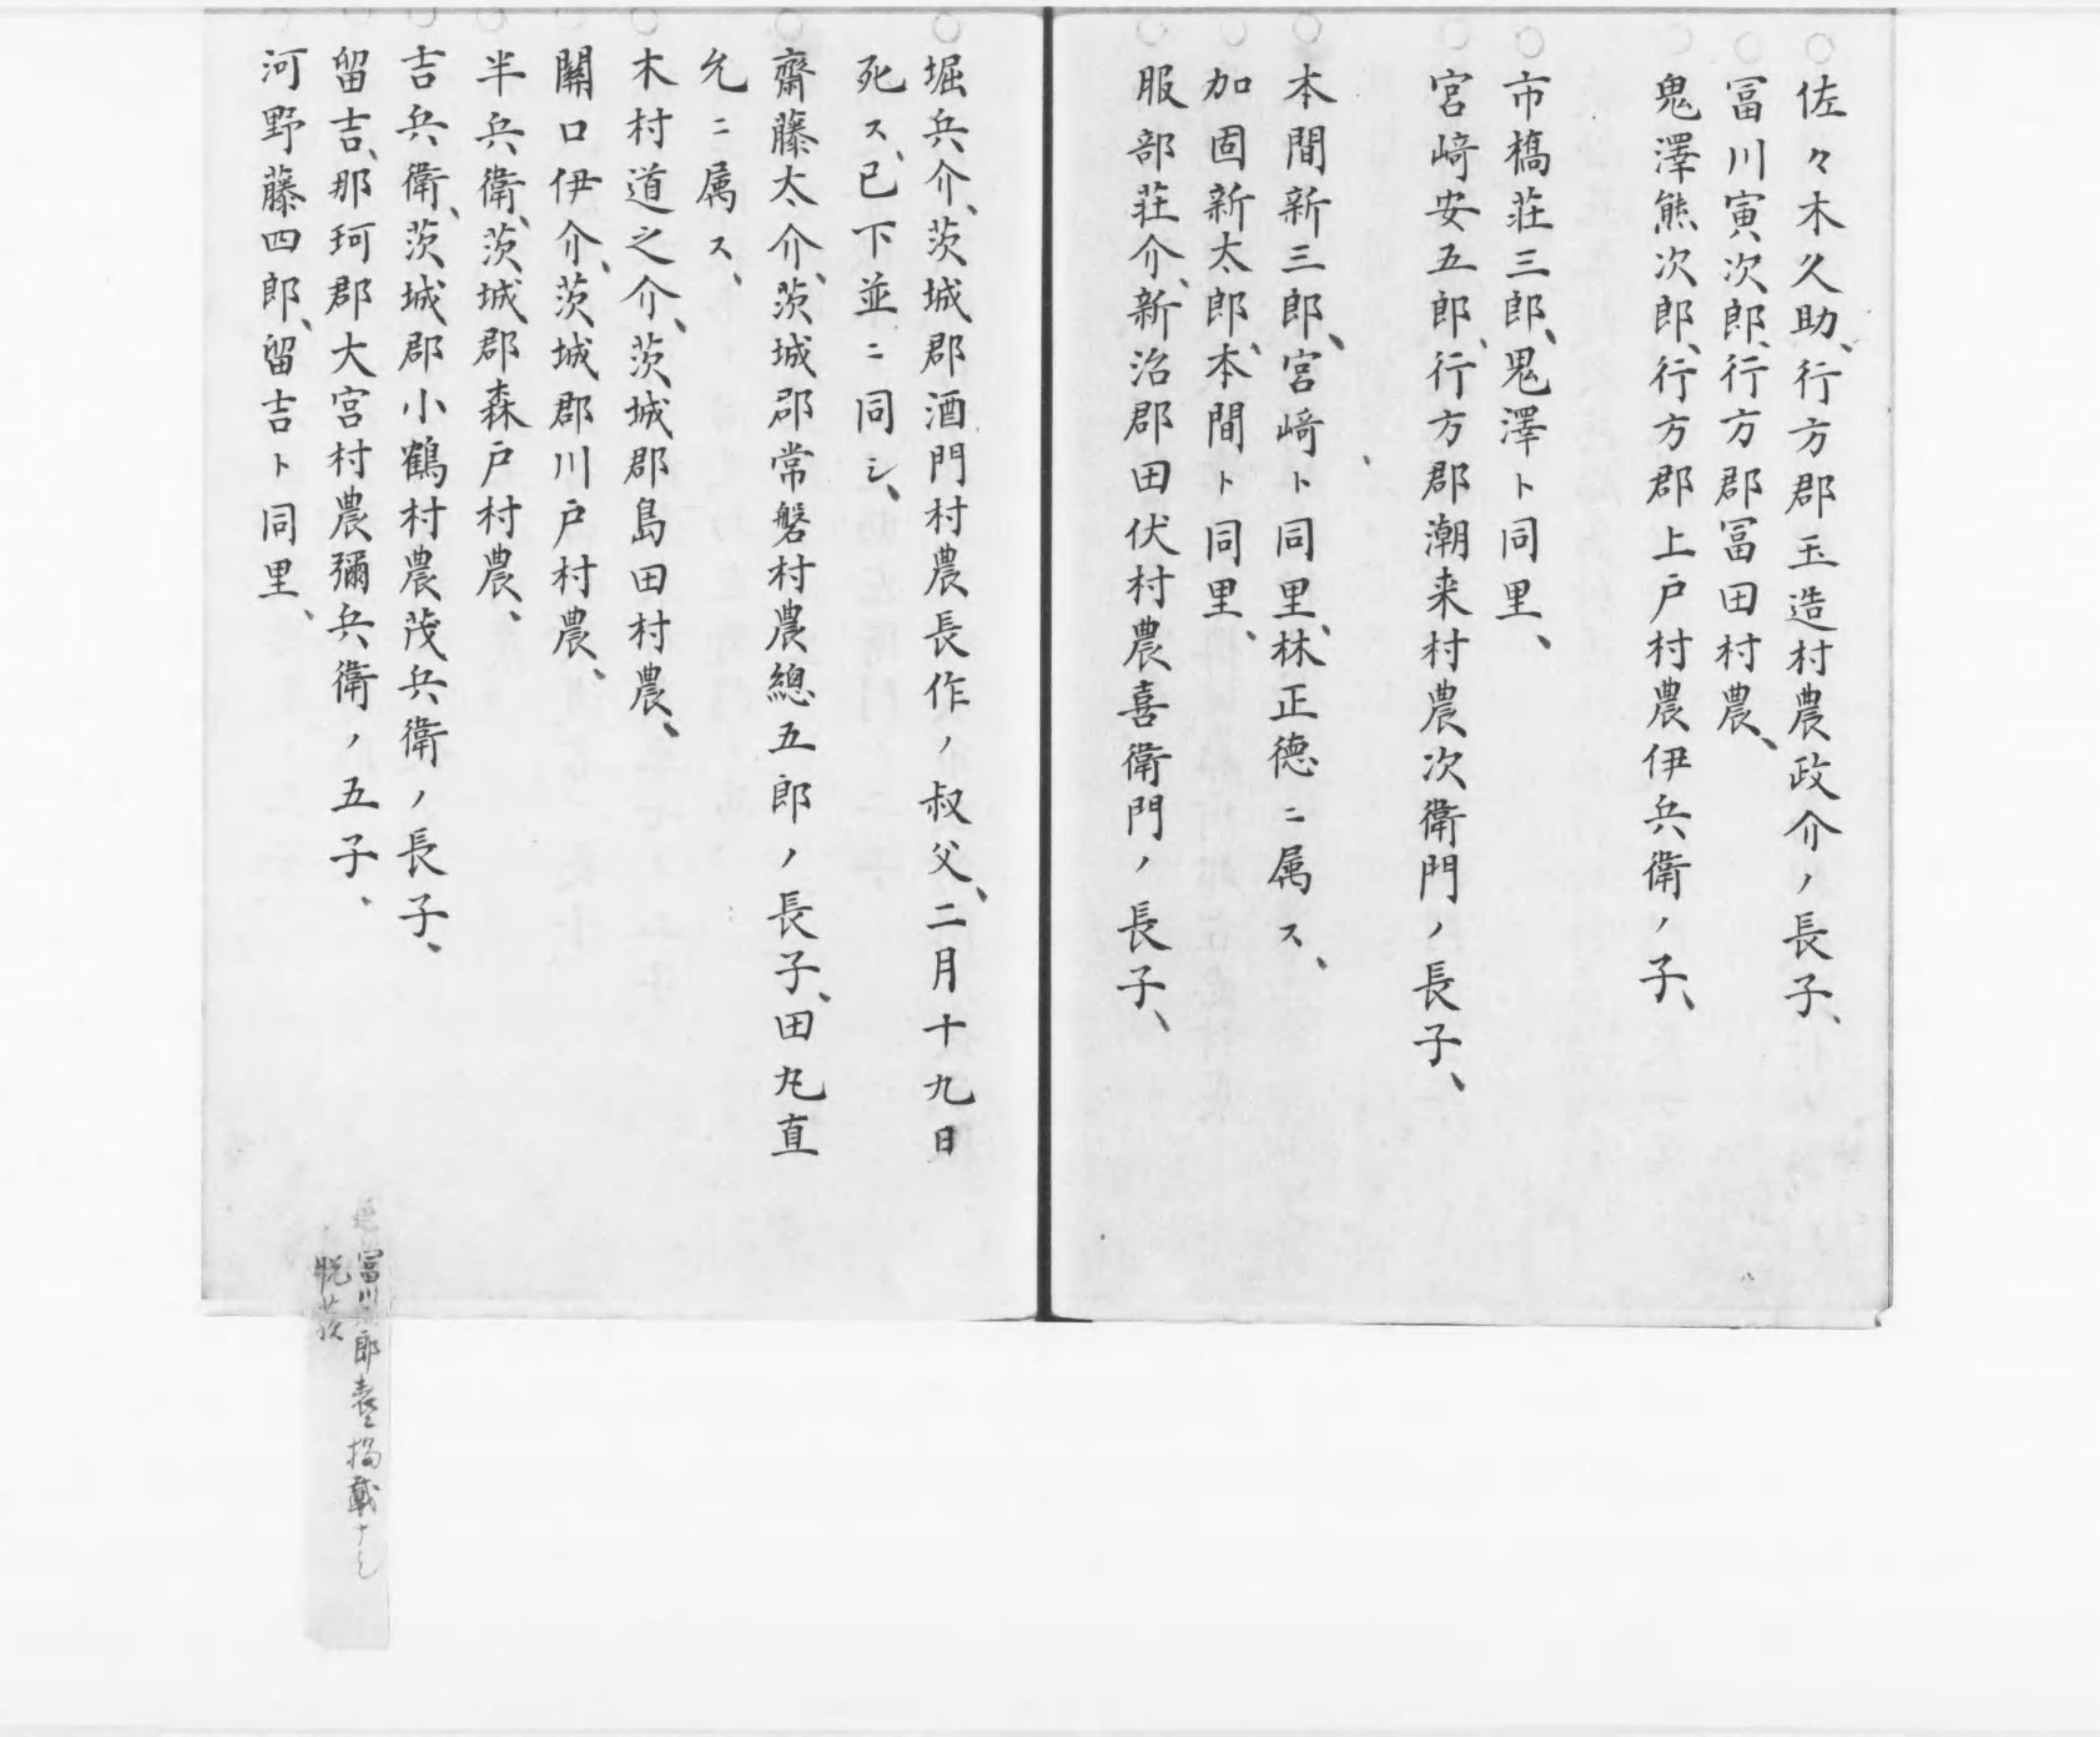 佐々木久助、行方郡玉造村農政介ノ長子、
冨川寅次郎、行方郡冨田村農、
鬼澤熊次郎、行方郡上戸村農伊兵衛ノ子、
市橋荘三郎、鬼澤ト同里、
宮﨑安五郎、行方郡潮来村農次衛門ノ長子、
本間新三郎、宮﨑ト同里、林正徳ニ属ス、
加固新太郎、本間ト同里、
服部荘介、新治郡田伏村農喜衛門ノ長子、
堀兵介、茨城郡酒門村農長作ノ叔父、二月十九日
死ス、已下並ニ同シ、
齋藤太介、茨城郡常磐村農總五郎ノ長子、田丸直
允ニ属ス、
木村道之介、茨城郡島田村農、
關口伊介、茨城郡川戸村農、
半兵衛、茨城郡森戸村農、
吉兵衛、茨城郡小鶴村農茂兵衛ノ長子、
留吉、那珂郡大宮村農彌兵衛ノ五子、
河野藤四郎、留吉ト同里、
冨川 郎 表ニ掲載ナシ
脱